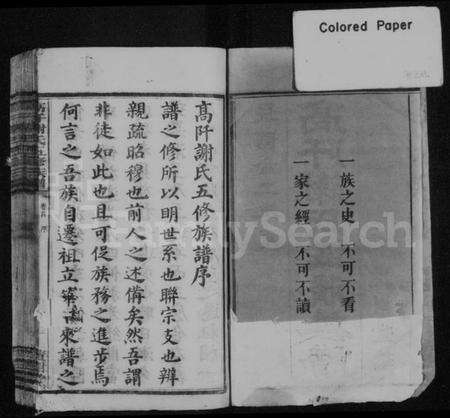 Colored Paper
一族之史 不可不看
一家之經 不可不讀
FamilySearch
高阡謝氏五修族譜序
譜之修所以明世系也聯宗支也辨
親疏昭穆也前人之述備矣然吾謂
非徒如此也且可促族務之進步焉
何言之吾族自遷祖立業以來譜之